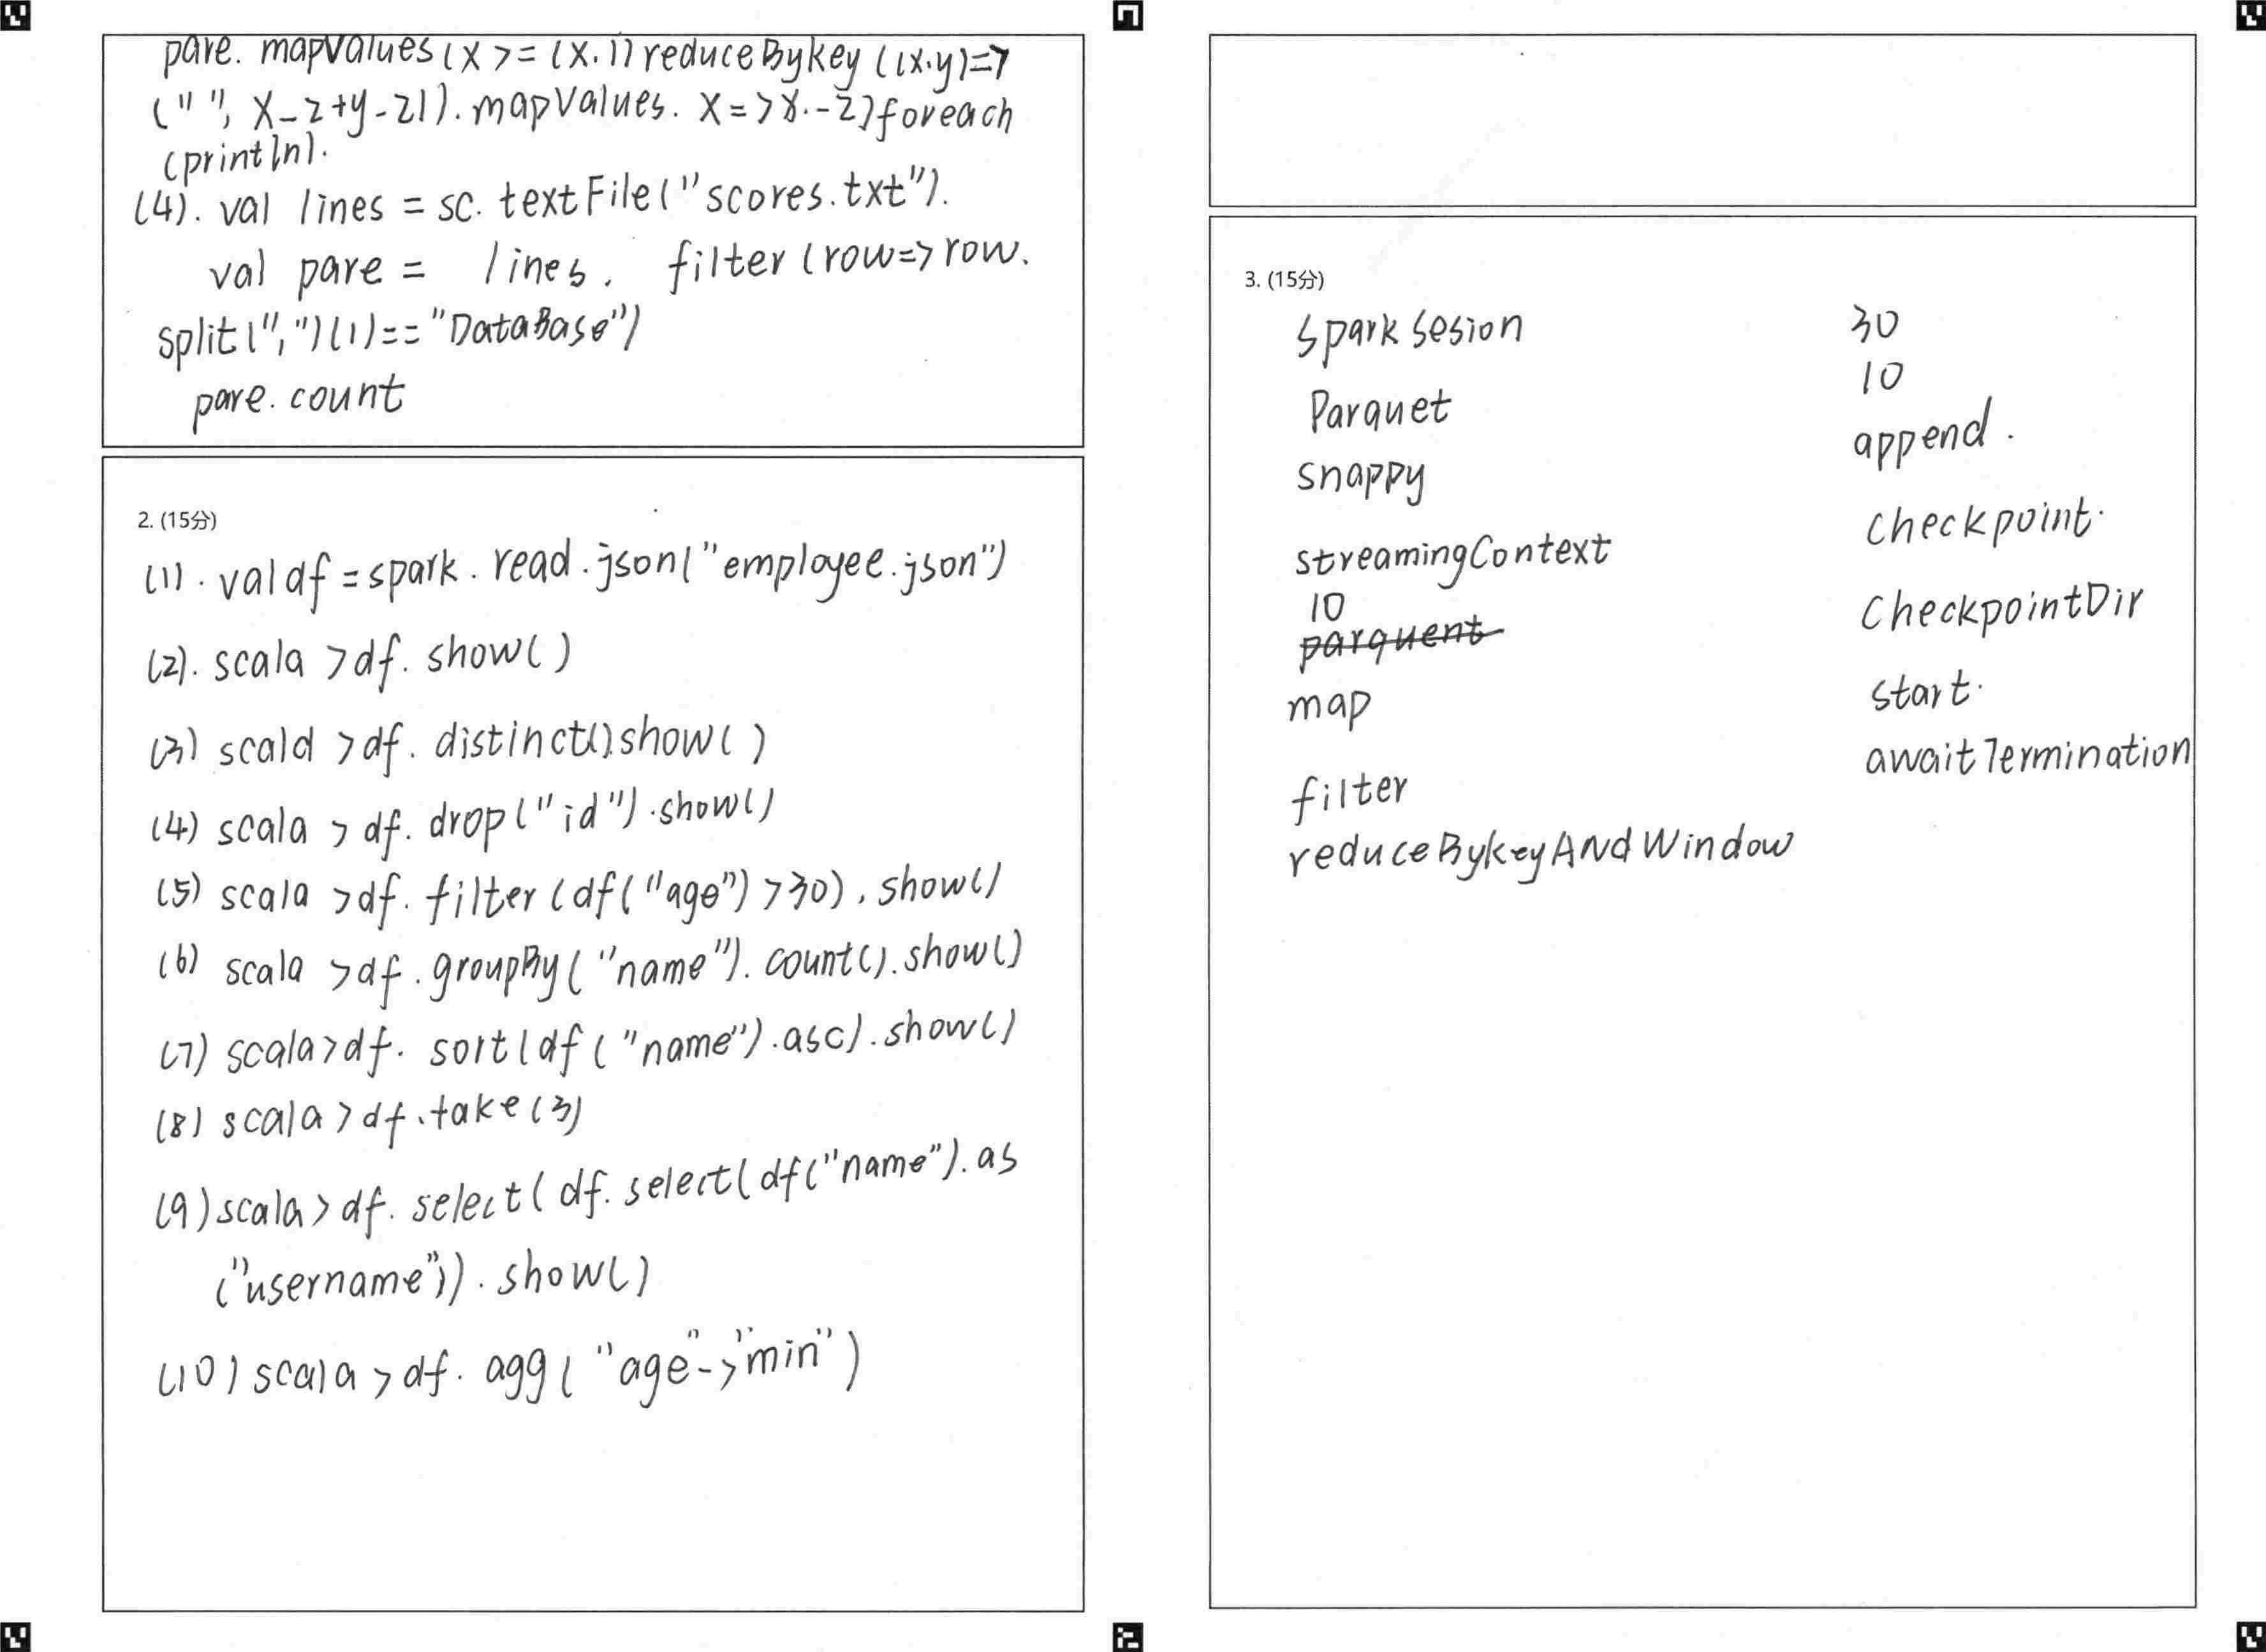 pare. mapValues(x >= (x.1) reduceBykey ((x.y)=>
(" ", x_2+y-2)). mapValues. x=>x.-2)foreach
(println).
(4). val lines = sc. textFile("scores.txt").
val pare = lines. filter (row=> row.
split(",")(1)== "DataBase")
pare. count
2. (15分)
(1). val df = spark. read. json("employee.json")
(2). scala >df. show( )
(3) scald >df. distinct().show( )
(4) scala > df. drop("id").show()
(5) scala >df. filter (df("age") >30). show()
(6) scala >df. groupBy("name"). count(). show()
(7) scala>df. sort(df("name").asc). show()
(8) scala > df.take(3)
(9) scala> df. select( df. select(df("name"). as
("username")). show()
(10) scala > df. agg( "age"->"min")
3. (15分)
spark sesion
Parquet
snappy
streamingContext
10
parquent
map
filter
reduceBykeyANdWindow
30
10
append.
checkpoint.
CheckpointDir
start.
awaitTermination